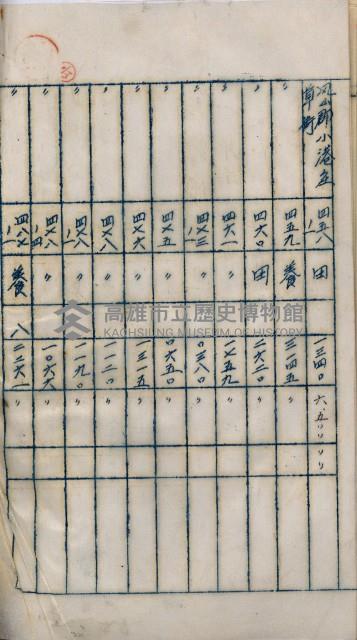 鳳山郡小港庄
草衙
四五八ノ一 田 一三四〇 六、五〇〇〇
〃 四五九 養 三一四五 〃
〃 四六〇 田 二六二〇 〃
〃 四六一 〃 一七五九 〃
〃 四七三ノ一 〃 〇三八〇 〃
〃 四七五 〃 〇六五〇 〃
〃 四七六 〃 一三一五 〃
〃 四七八 〃 一一二〇 〃
〃 四七八ノ一 〃 一一九〇 〃
〃 四七八ノ四 〃 一〇六六 〃
〃 四八七ノ一 養 八二二六一 〃
高雄市立歷史博物館
KAOHSIUNG MUSEUM OF HISTORY